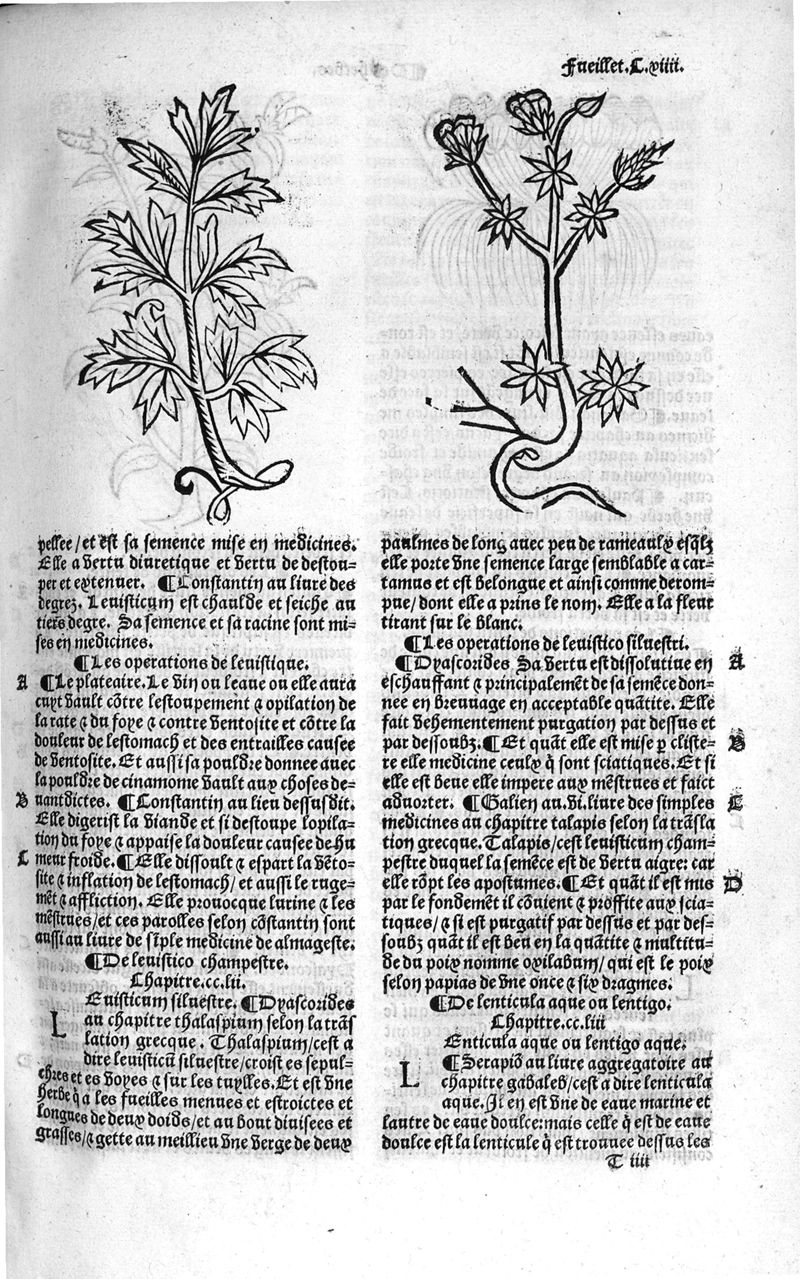 Fueillet.C.xiiii.
pellee/et est sa semence mise en medicines.
Elle a vertu diuretique et vertu de destou-
per et extenuer. ¶Constantin au liure des
degrez. Leuisticum est chaulde et seiche au
tiers degre. Sa semence et sa racine sont mi-
ses en medicines.
¶Les operations de leuistique.
A ¶Le plateaire. Le vin ou leaue ou elle aura
cuyt vault cõtre lestoupement ⁊ opilation de
la rate ⁊ du foye ⁊ contre ventosite et cõtre la
douleur de lestomach et des entrailles causee
de ventosite. Et aussi sa pouldre donnee auec
la pouldre de cinamome vault aux choses de-
B uantdictes. ¶Constantin au lieu dessusdit.
Elle digerist la viande et si destoupe lopila-
tion du foye ⁊ appaise la douleur causee de hu
C meur froide. ¶Elle dissoult ⁊ espart la vẽto-
site ⁊ inflation de lestomach/ et aussi le ruge-
mẽt ⁊ affliction. Elle prouocque lurine ⁊ les
mẽstrues/et ces parolles selon cõstantin sont
aussi au liure de sĩple medicine de almageste.
¶De leuistico champestre.
Chapitre.cc.lii.
LEuisticum siluestre. ¶Dyascorides
au chapitre thalaspium selon la trãs
lation grecque. Thalaspium/cest a
dire leuisticũ siluestre/croist es sepul-
chres et es voyes ⁊ sur les tuylles. Et est vne
herbe q̃ a les fueilles menues et estroictes et
longues de deux doids/et au bout diuisees et
grasses/⁊ gette au meillieu vne verge de deux
paulmes de long auec peu de rameaulx esq̃lz
elle porte vne semence large semblable a car-
tamus et est belongue et ainsi comme derom-
pue/dont elle a prins le nom. Elle a la fleur
tirant sur le blanc.
¶Les operations de leuistico siluestri.
¶Dyascorides Sa vertu est dissolutiue en A
eschauffant ⁊ principalemẽt de sa semẽce don-
nee en breuuage en acceptable quãtite. Elle
fait vehementement purgation par dessus et
par dessoubz. ¶Et quãt elle est mise ꝑ cliste- B
re elle medicine ceulx q̃ sont sciatiques. Et si
elle est beue elle impere aux mẽstrues et faict
aduorter. ¶Galien au.vi.liure des simples C
medicines au chapitre talapis selon la trãsla
tion grecque. Talapis/cest leuisticum cham-
pestre duquel la semẽce est de vertu aigre: car
elle rõpt les apostumes. ¶Et quãt il est mis D
par le fondemẽt il cõuient ⁊ proffite aux scia-
tiques/⁊ si est purgatif par dessus et par des-
soubz quãt il est beu en la quãtite ⁊ multitu-
de du poix nomme oxilabum/ qui est le poix
selon papias de vne once ⁊ six dragmes.
¶De lenticula aque ou lentigo.
Chapitre.cc.liii
LEnticula aque ou lentigo aque.
¶Serapiõ au liure aggregatoire au
chapitre gabaleb/cest a dire lenticula
aque. Il en est vne de eaue marine et
lautre de eaue doulce: mais celle q̃ est de eaue
doulce est la lenticule q̃ est trouuee dessus les
T iiii